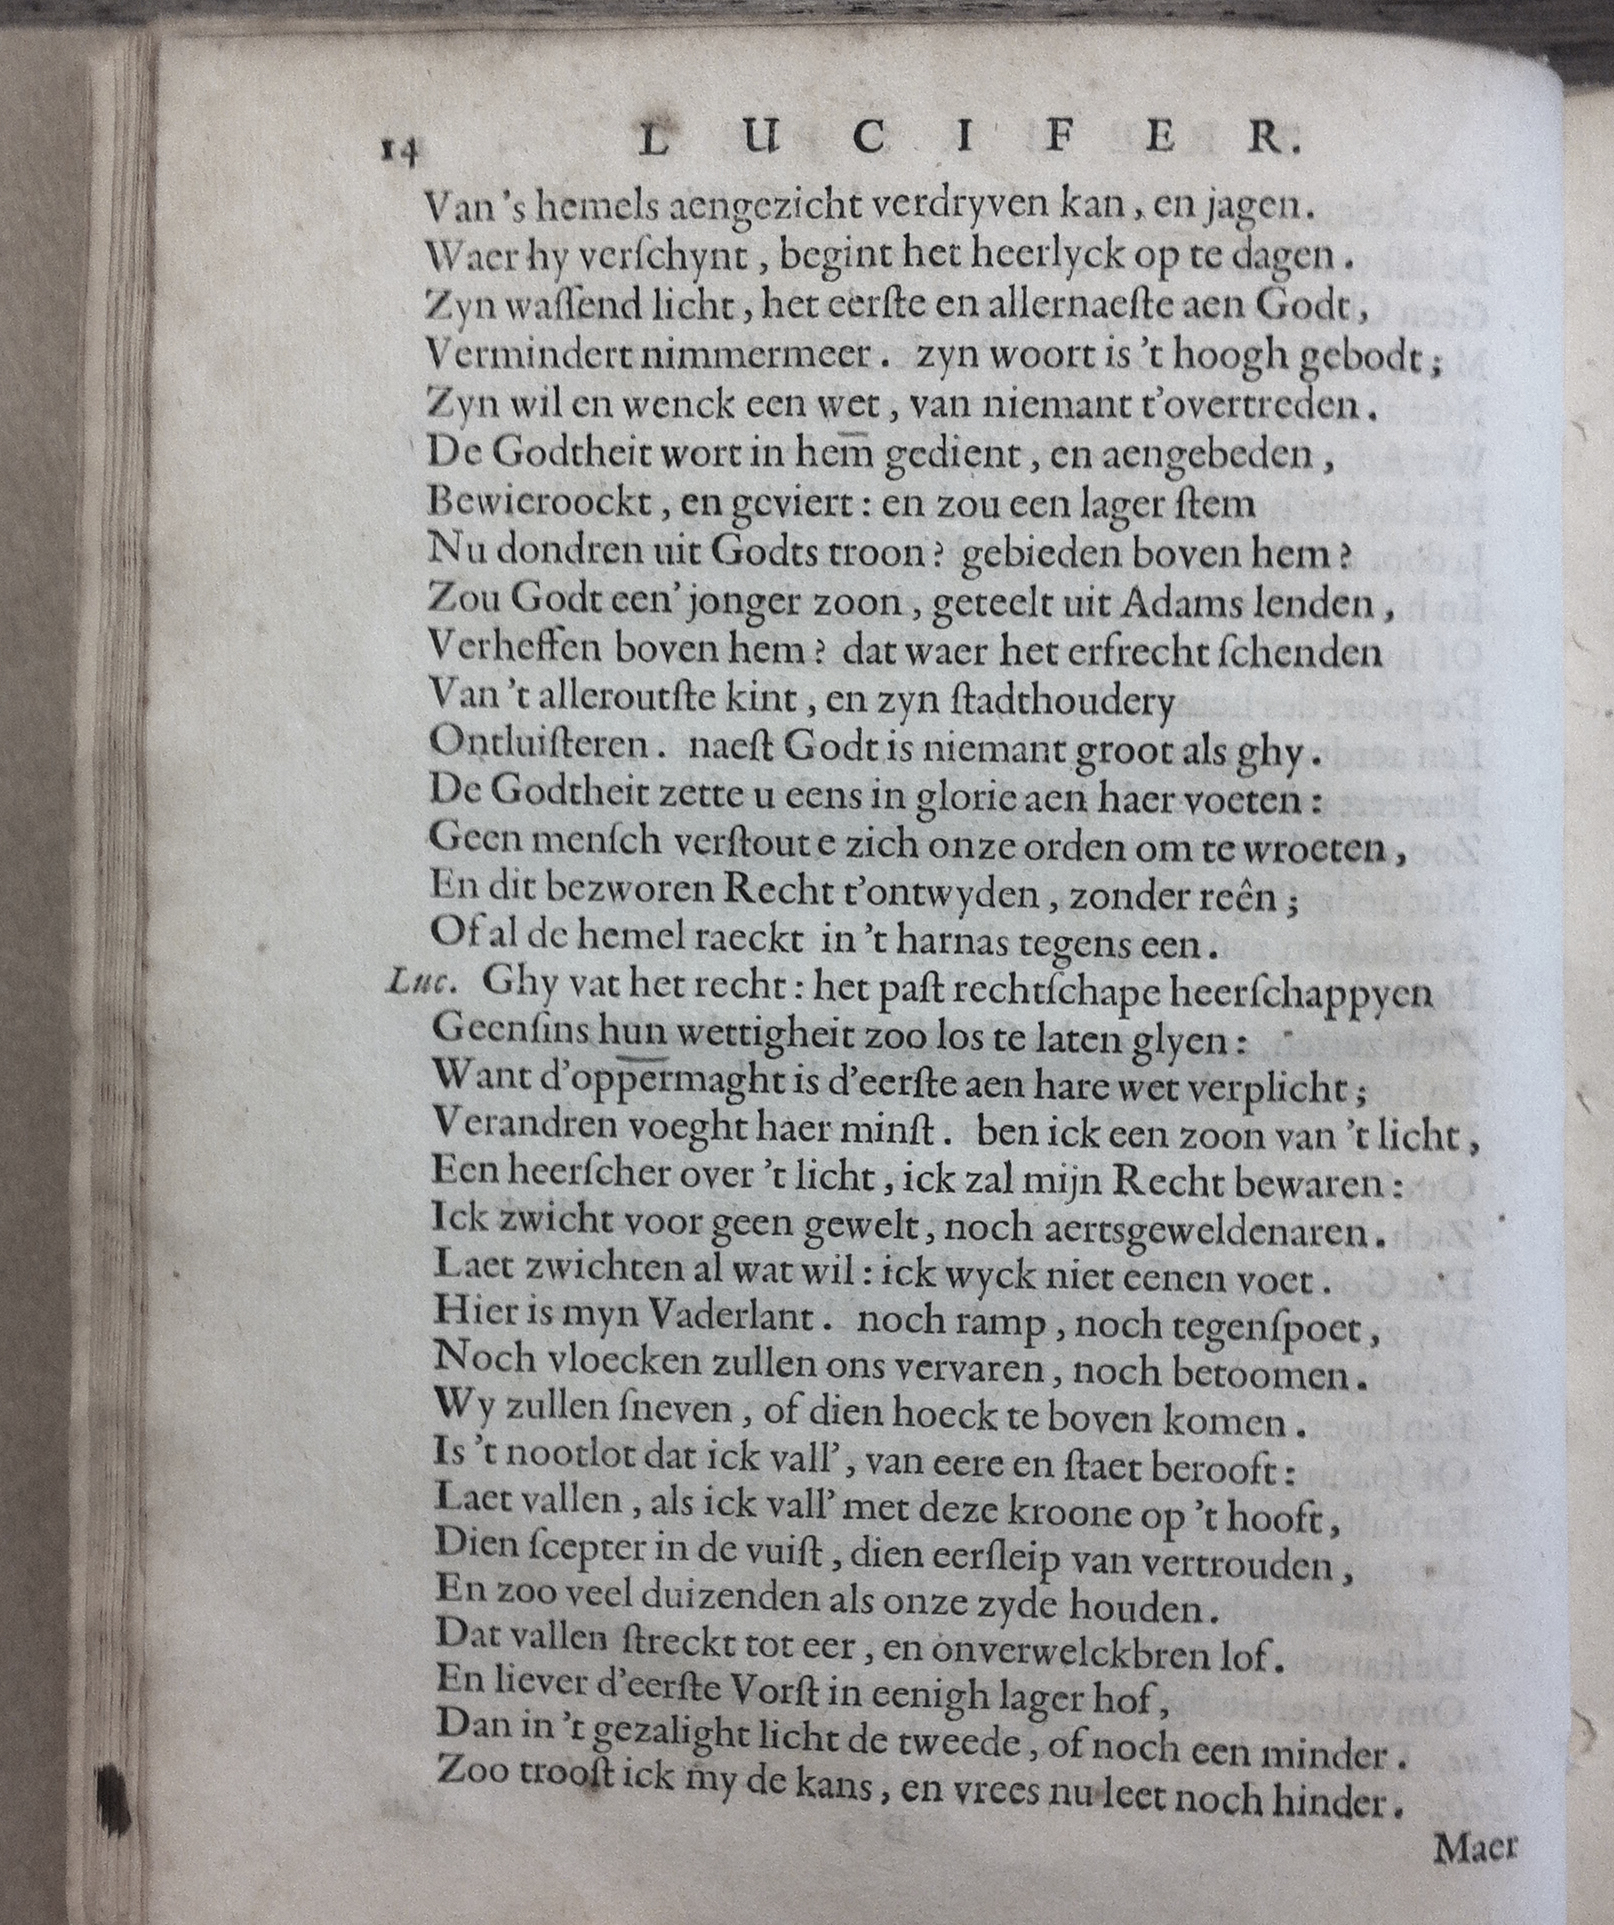 14 LUCIFER.
Van 's hemels aengezicht verdryven kan, en jagen.
Waer hy verſchynt, begint het heerlyck op te dagen.
Zyn waſſend licht, het eerſte en allernaeſte aen Godt,
Vermindert nimmermeer. zyn woort is 't hoogh gebodt;
Zyn wil en wenck een wet, van niemant t'overtreden.
De Godtheit wort in hem gedient, en aengebeden,
Bewieroockt, en geviert: en zou een lager ſtem
Nu dondren uit Godts troon? gebieden boven hem?
Zou Godt een' jonger zoon, geteelt uit Adams lenden,
Verheffen boven hem? dat waer het erfrecht ſchenden
Van 't alleroutſte kint, en zyn ſtadthoudery
Ontluiſteren. naeſt Godt is niemant groot als ghy.
De Godtheit zette u eens in glorie aen haer voeten:
Geen menſch verſtoute zich onze orden om te wroeten,
En dit bezworen Recht t'ontwyden, zonder reên;
Of al de hemel raeckt in 't harnas tegens een.
Luc. Ghy vat het recht: het paſt rechtſchape heerſchappyen
Geenſins hun wettigheit zoo los te laten glyen:
Want d'oppermaght is d'eerſte aen hare wet verplicht;
Verandren voeght haer minſt. ben ick een zoon van 't licht,
Een heerſcher over 't licht, ick zal mijn Recht bewaren:
Ick zwicht voor geen gewelt, noch aertsgeweldenaren.
Laet zwichten al wat wil: ick wyck niet eenen voet.
Hier is myn Vaderlant. noch ramp, noch tegenſpoet,
Noch vloecken zullen ons vervaren, noch betoomen.
Wy zullen ſneven, of dien hoeck te boven komen.
Is 't nootlot dat ick vall', van eere en ſtaet berooft:
Laet vallen, als ick vall' met deze kroone op 't hooft,
Dien ſcepter in de vuiſt, dien eerſleip van vertrouden,
En zoo veel duizenden als onze zyde houden.
Dat vallen ſtreckt tot eer, en onverwelckbren lof.
En liever d'eerſte Vorſt in eenigh lager hof,
Dan in 't gezalight licht de tweede, of noch een minder.
Zoo trooſt ick my de kans, en vrees nu leet noch hinder.
Maer